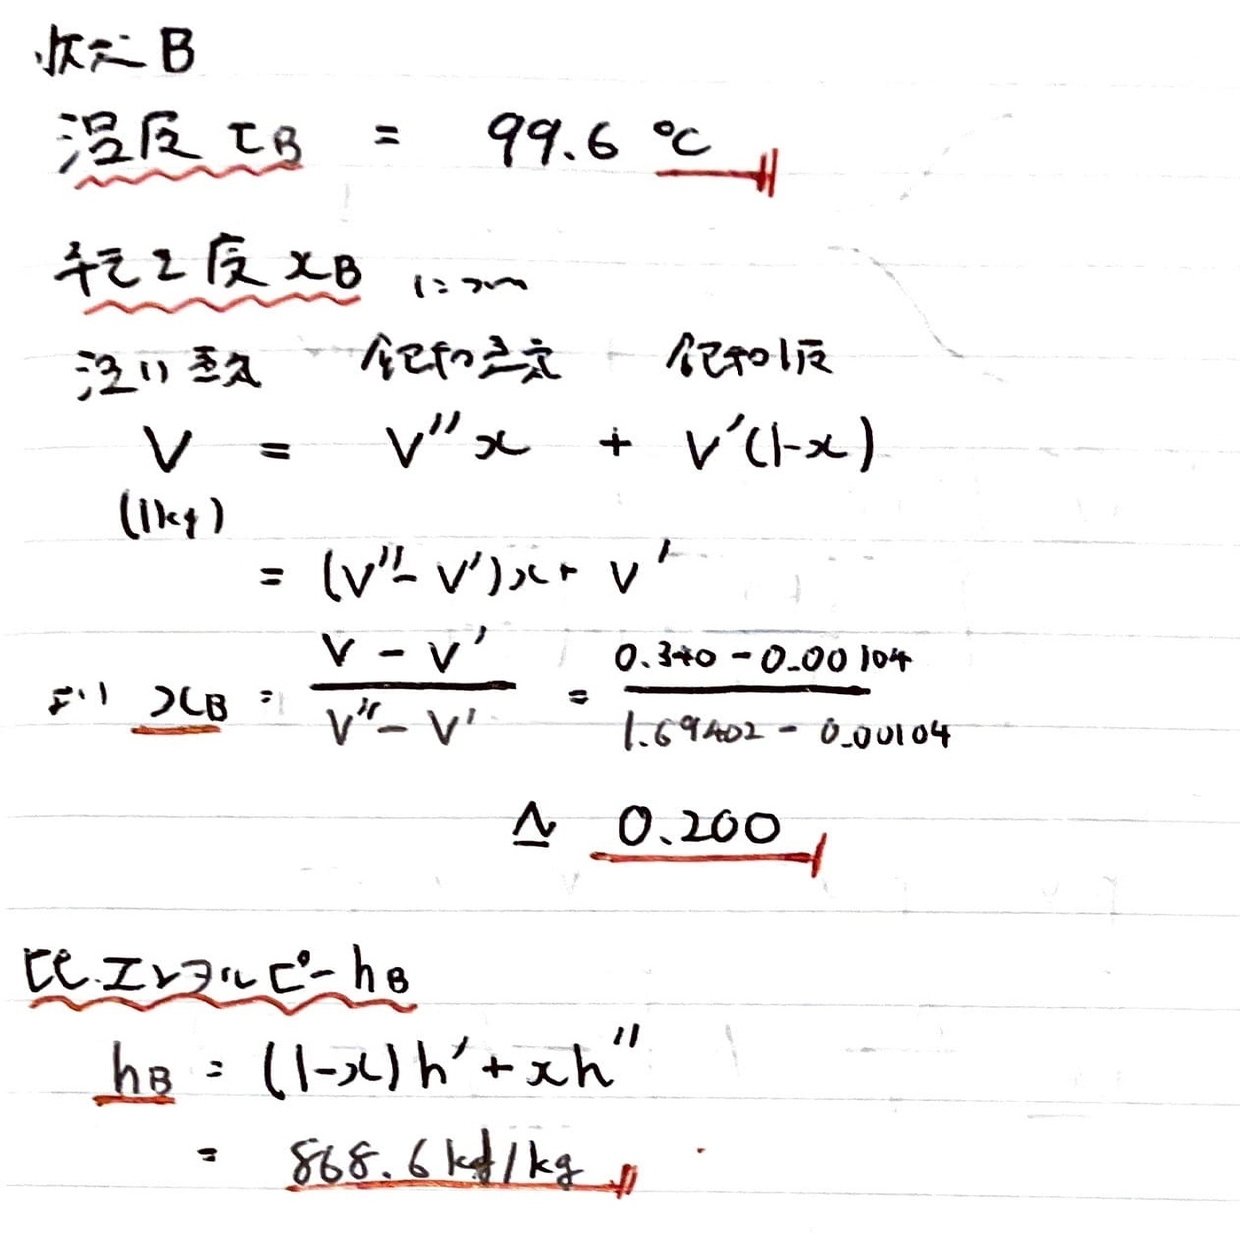 状態B
温度 TB = 99.6 ℃
乾き度 xB について
湿り蒸気 飽和蒸気 飽和液
V = V″x + V′(1-x)
(1kg)
= (V″- V′)x + V′
より xB = (V - V′)/(V″- V′) = (0.340 - 0.00104)/(1.69402 - 0.00104)
≒ 0.200
比エンタルピー hB
hB = (1-x)h′ + xh″
= 868.6 kJ/kg